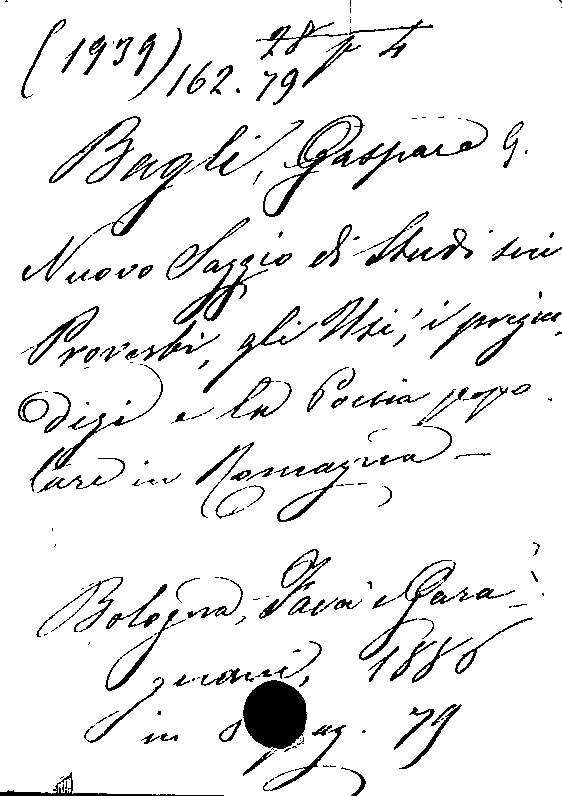 (1939) 28 p 4
162.79
Bagli, Gaspare G.
Nuovo Saggio di Studi sui
Proverbi, gli Usi, i pregiu-
dizi e la Poesia popo-
lare in Romagna -
Bologna, Fava e Gara-
gnani, 1886
in 8 pag. 79